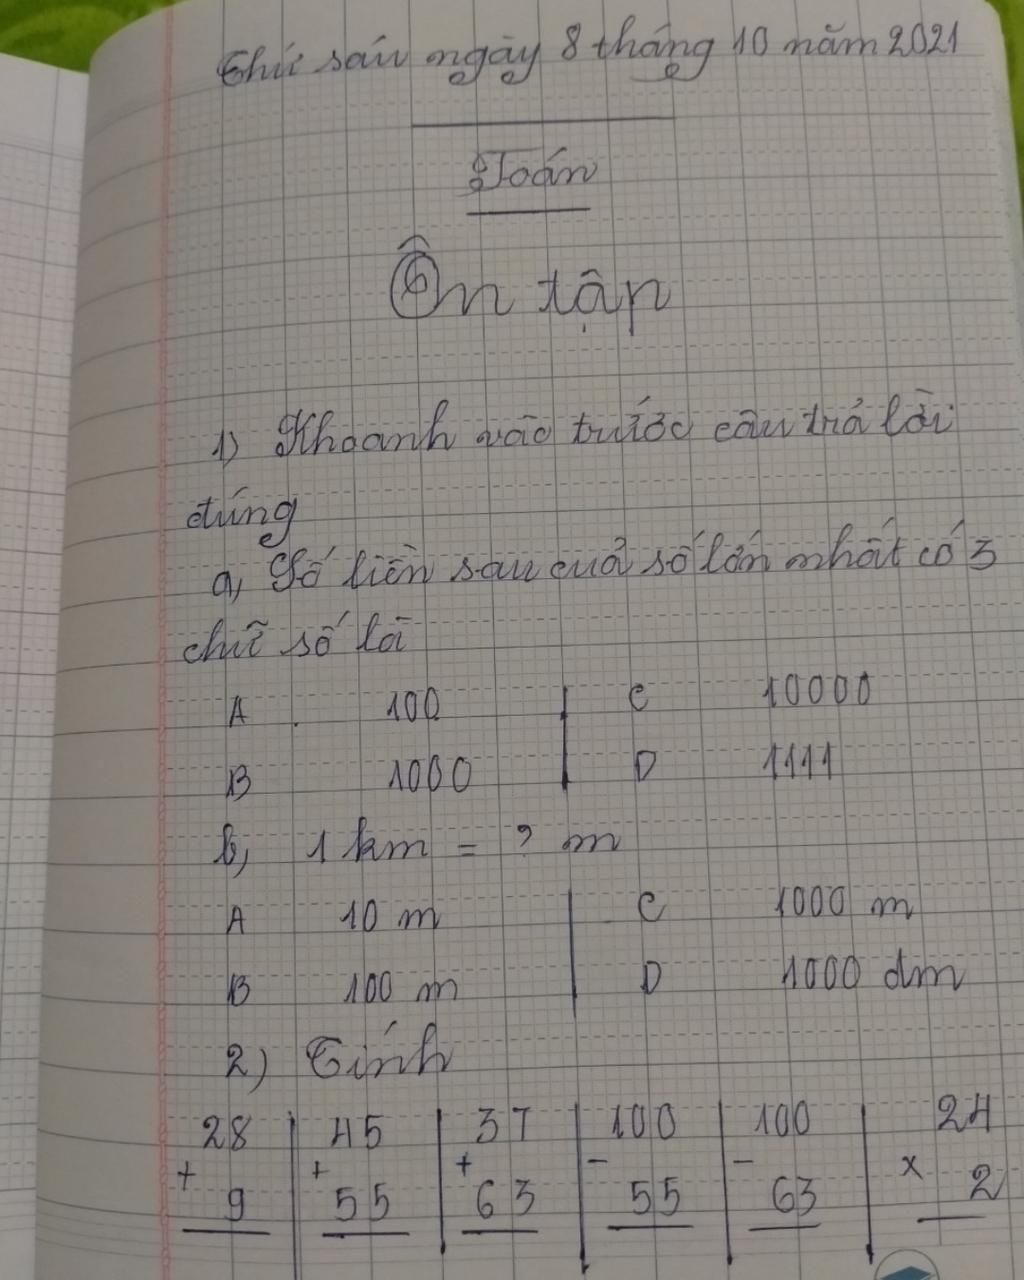 Thứ sáu ngày 8 tháng 10 năm 2021
Toán
Ôn tập
1) Khoanh vào trước câu trả lời
đúng
a, Số liền sau của số lớn nhất có 3
chữ số là
A 100 | C 10000
B 1000 | D 1111
b, 1 km = ? m
A 10 m | C 1000 m
B 100 m | D 1000 dm
2) Tính
28 | 45 | 37 | 100 | 100 | 24
+ | + | + | - | - | x
9 | 55 | 63 | 55 | 63 | 2